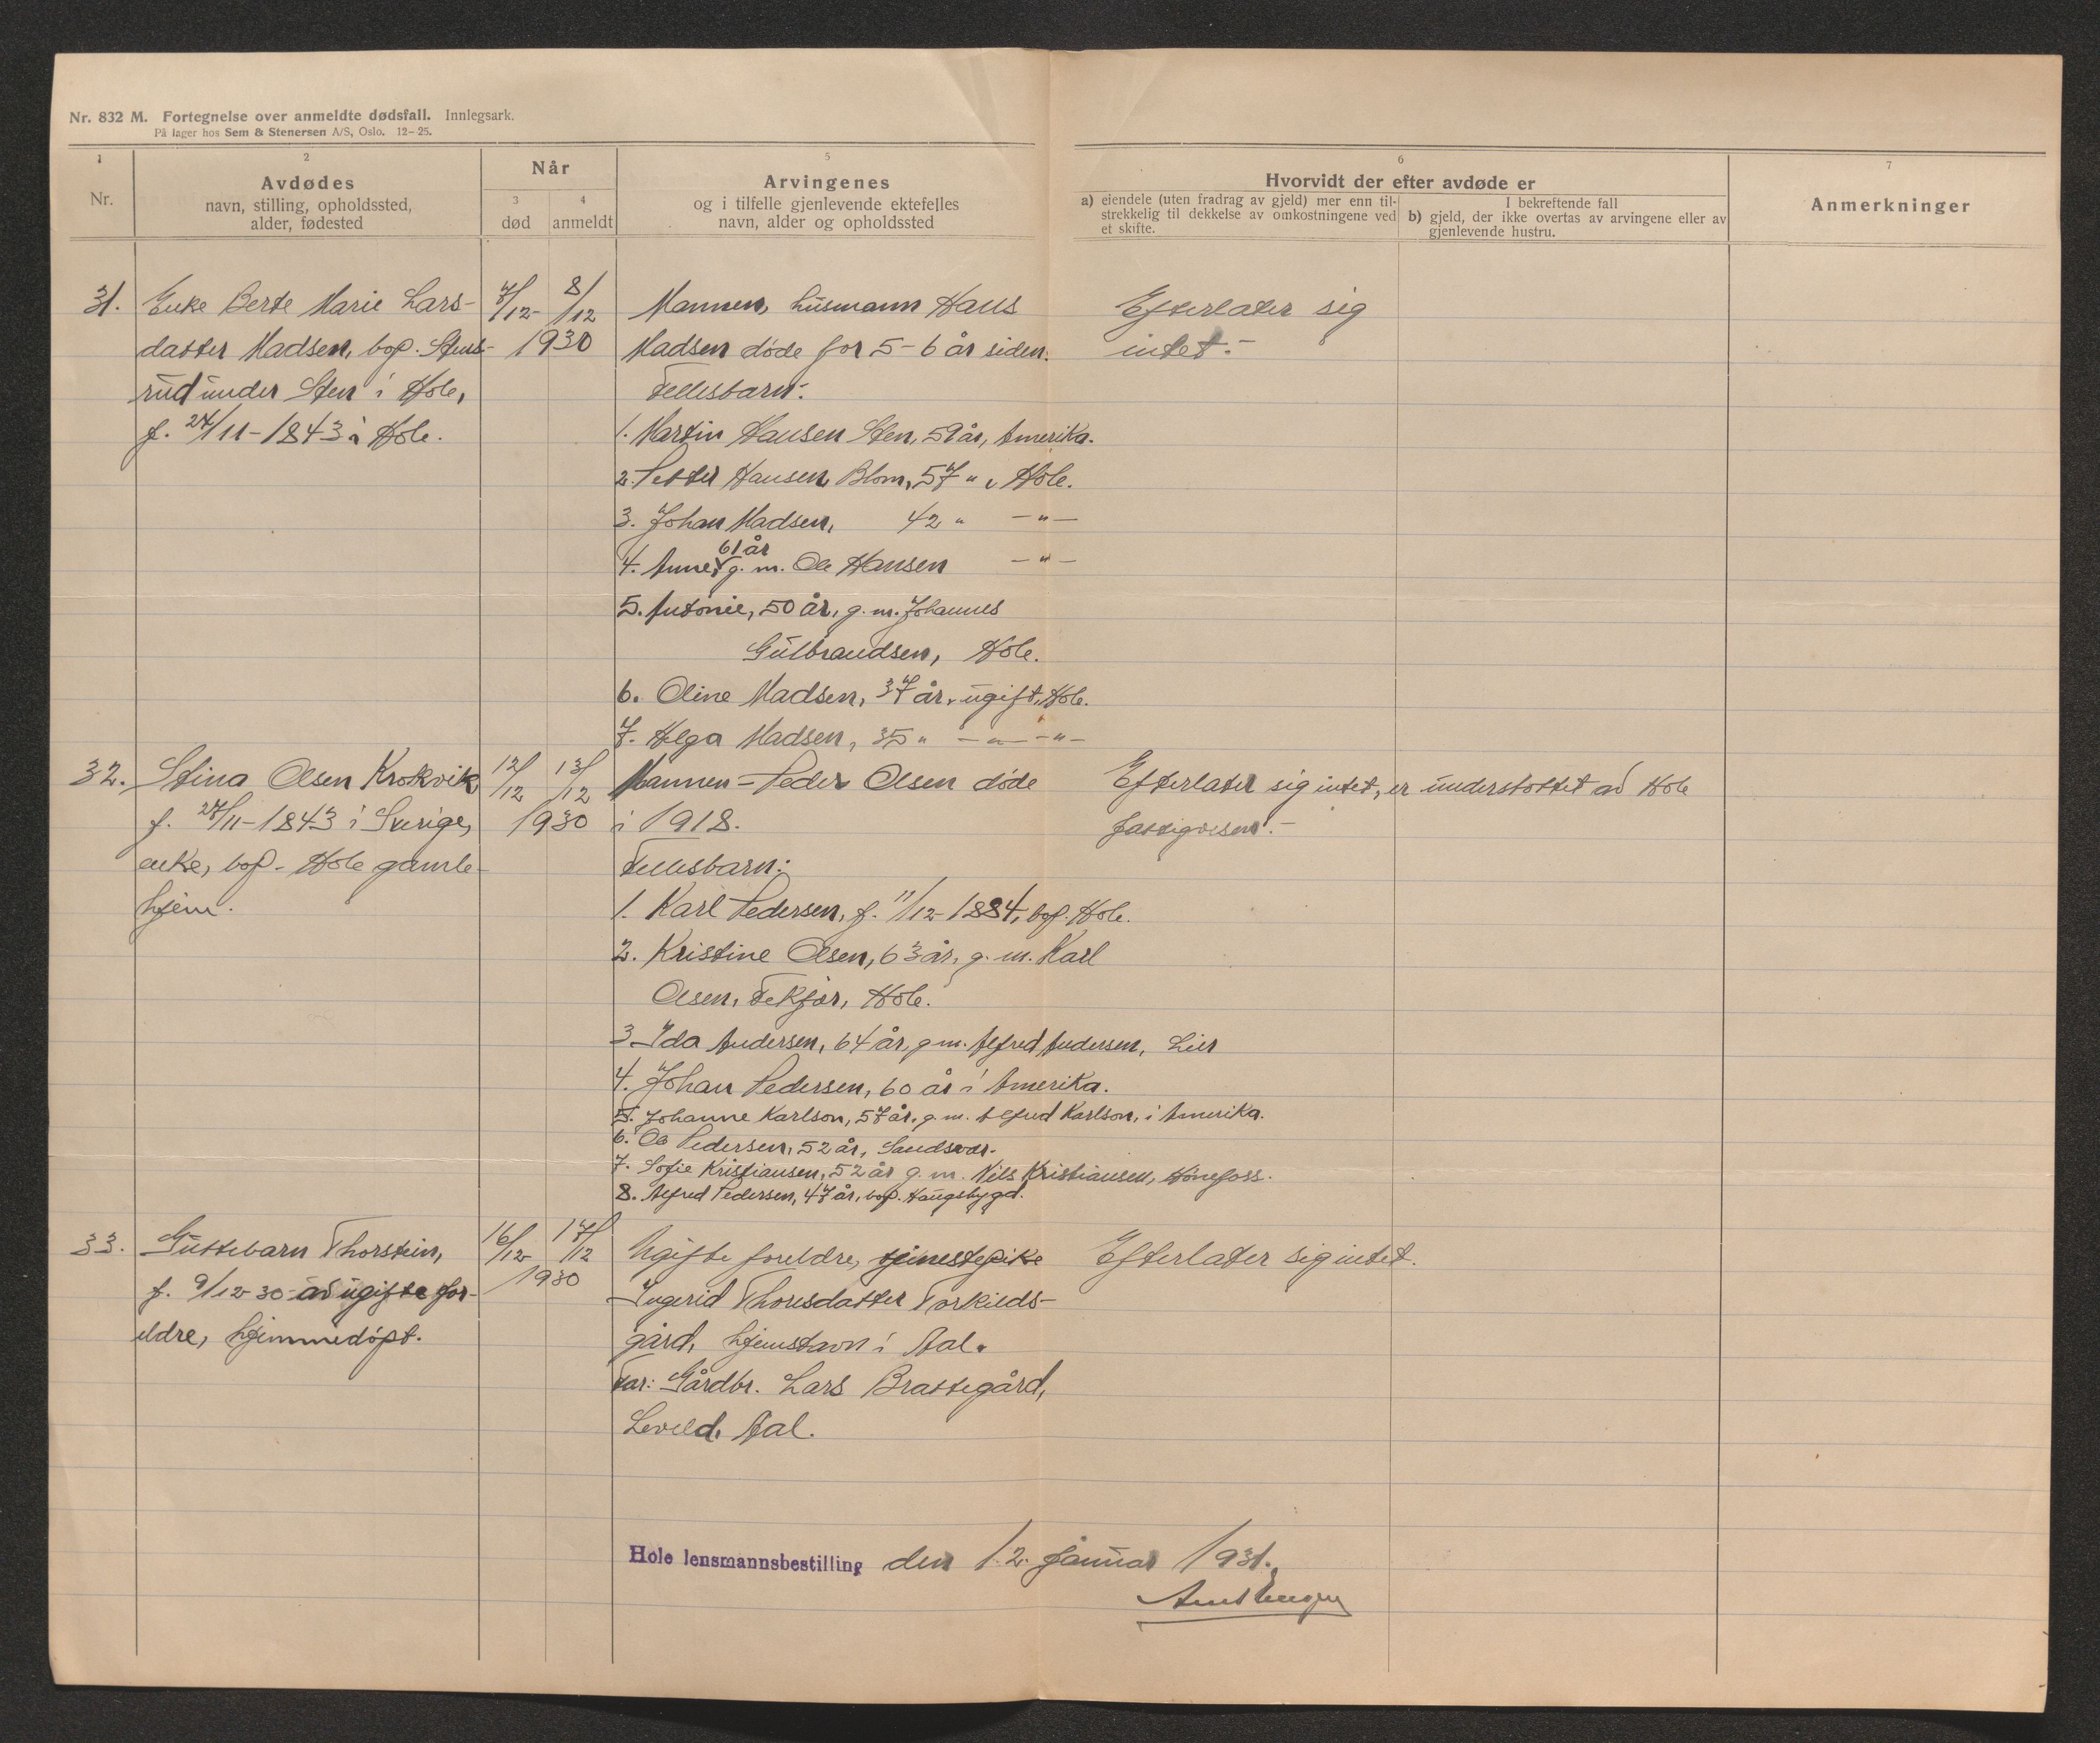 Nr. 832 M. Fortegnelse over anmeldte dødsfall. Innlegsark.
På lager hos Sem & Stenersen A/S, Oslo. 12-25.
1
Nr.
2
Avdødes
navn, stilling, opholdssted,
alder, fødested
Når
3
død
4
anmeldt
5
Arvingenes
og i tilfelle gjenlevende ektefelles
navn, alder og opholdssted
6
Hvorvidt der efter avdøde er
a) eiendele (uten fradrag av gjeld) mer enn til-
strekkelig til dekkelse av omkostningene ved
et skifte.
I bekreftende fall
b) gjeld, der ikke overtas av arvingene eller av
gjenlevende hustru.
7
Anmerkninger
31.
Enke Berte Marie Lars-
datter Madsen, bop. Stens-
rud under Sten i Hole,
f. 24/11-1843 i Hole.
7/12- 8/12
1930
Mannen, husmann Hans
Madsen døde for 5-6 år siden.
Fellesbarn:
1. Martin Hansen Sten, 59 år, Amerika.
2. Petter Hansen Blom, 57 " , Hole.
3. Johan Madsen, 42 " -"-
61 år
4. Anne, g. m. Ole Hansen -"-
5. Antonie, 50 år, g. m. Johannes
Gulbrandsen, Hole.
6. Oline Madsen, 37 år, ugift, Hole.
7. Helga Madsen, 35 " -"- -"-
Efterlater sig
intet.-
32.
Stina Olsen Krokvik
f. 28/11-1843 i Sverige,
enke, bop. Hole gamle-
hjem.
12/12 13/12
1930
Mannen - Peder Olsen døde
i 1918.
Fellesbarn:
1. Karl Pedersen, f. 11/12-1884, bop. Hole.
2. Kristine Olsen, 63 år, g. m. Karl
Olsen, Fekjær, Hole.
3 Ida Andersen, 64 år, g m. Alfred Andersen, Lier
4. Johan Pedersen, 60 år i Amerika.
5. Johanne Karlson, 57 år, g. m. Alfred Karlson, i Amerika.
6. Ole Pedersen, 52 år, Sandsvær.
7. Sofie Kristiansen, 52 år g. m. Nils Kristiansen, Hønefoss.
8. Alfred Pedersen, 47 år, bop. Haugsbygd.
Efterlater sig intet, er understøttet av Hole
fattigvesen.-
33.
Guttebarn Thorstein,
f. 9/12-30 av ugifte for-
eldre, hjemmedøpt.
16/12- 17/12
1930
Ugifte foreldre, tjenestepike
Ingerid Thoresdatter Torkilds-
gård, hjemstavn i Aal.
Far: Gårdbr. Lars Brattegård,
Leveld, Aal.
Efterlater sig intet.
Hole lensmannsbestilling den 12. januar 1931.